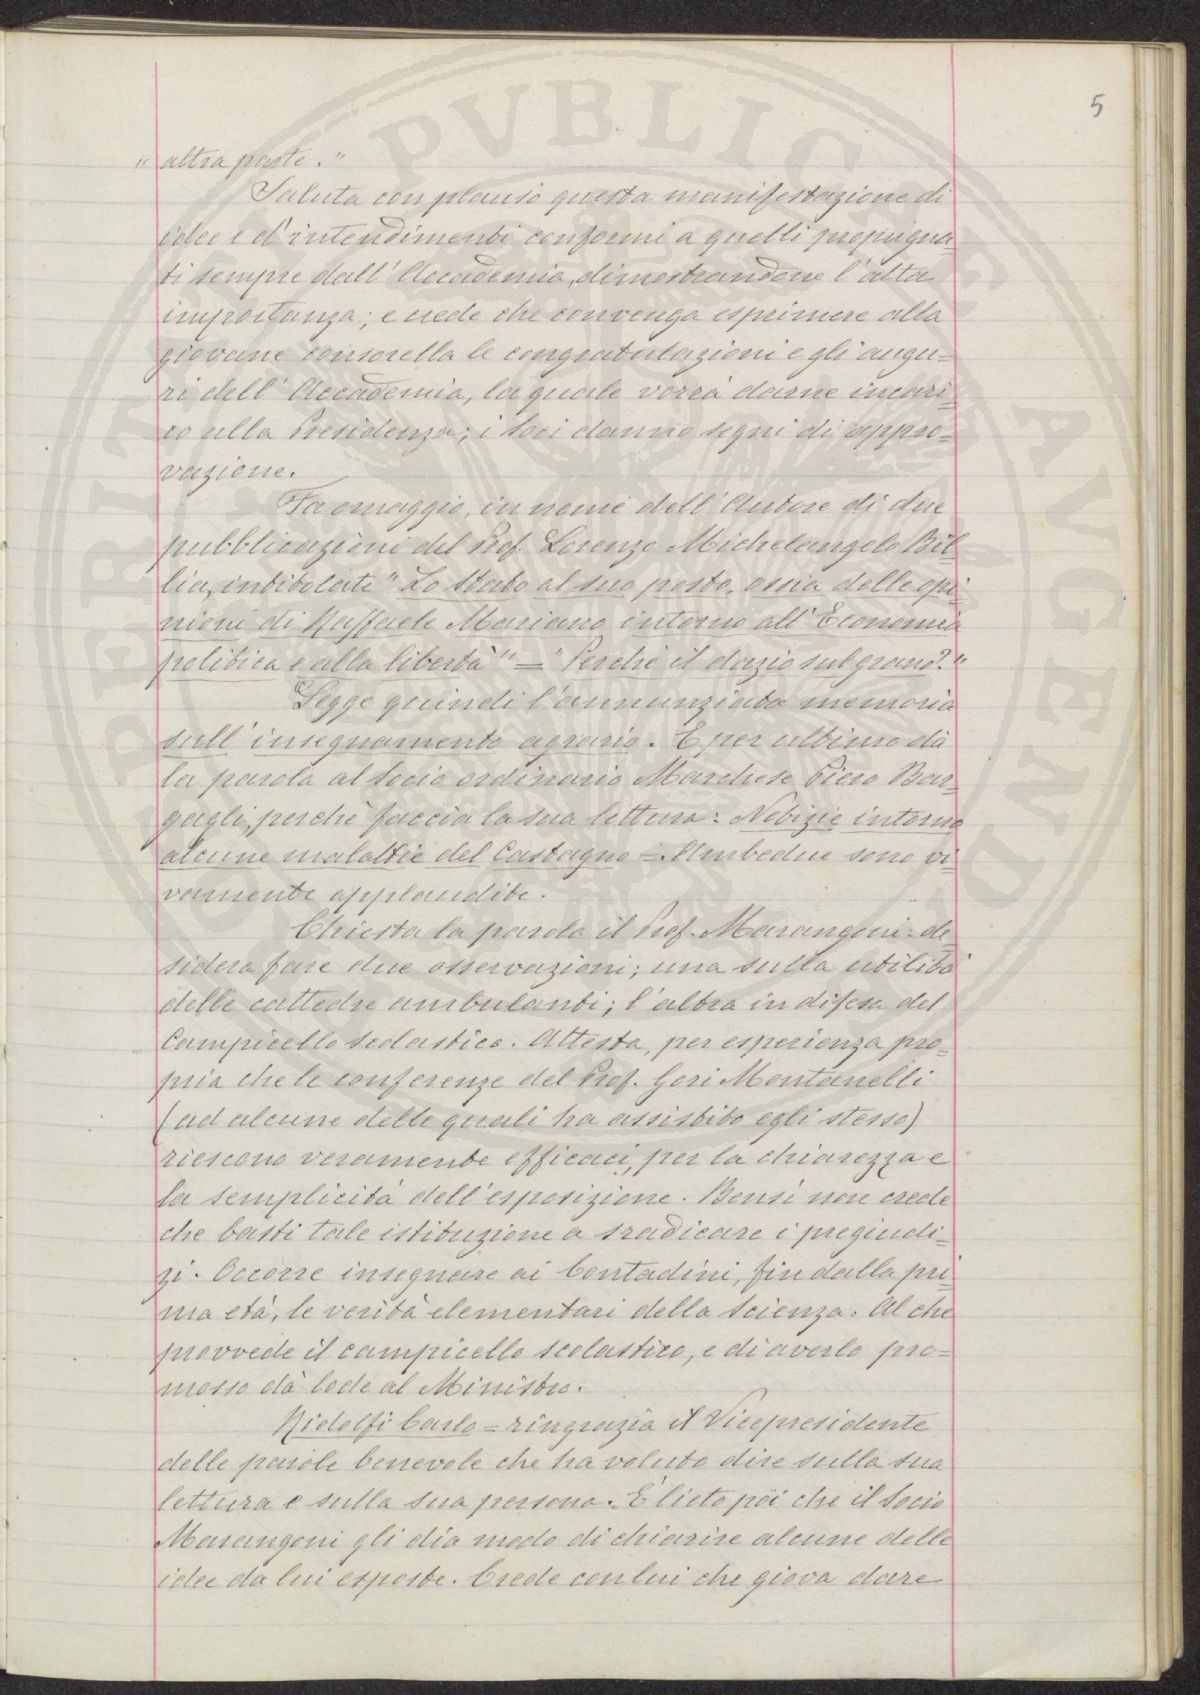 5
" altra parte."
Saluta con plauso questa manifestazione di
idee e d'intendimenti conformi a quelli propugna-
ti sempre dall'Accademia, dimostrandone l'alta
importanza; e crede che convenga esprimere alla
giovane consorella le congratulazioni e gli augu=
ri dell'Accademia, la quale vorrà darne incari-
co alla Presidenza; i Soci danno segni di appro=
vazione.
Fa omaggio, in nome dell'Autore di due
pubblicazioni del Prof. Lorenzo Michelangelo Bil-
lia, intitolate "Lo Stato al suo posto, ossia delle opi-
nioni di Raffaele Mariano intorno all'Economia
politica e alla libertà" = "Perchè il dazio sul grano?."
Legge quindi l'annunziata memoria
sull'insegnamento agrario. E per ultimo dà
la parola al Socio ordinario Marchese Piero Bar-
gagli, perchè faccia la sua lettura: Notizie intorno
alcune malattie del Castagno =. Ambedue sono vi-
vamente applaudite.
Chiesta la parola il Prof. Marangoni de-
sidera fare due osservazioni; una sulla utilità
delle cattedre ambulanti; l'altra in difesa del
Campicello scolastico. Attesta, per esperienza pro-
pria che le conferenze del Prof. Gori Montanelli
(ad alcune delle quali ha assistito egli stesso)
riescono veramente efficaci, per la chiarezza e
la semplicità dell'esposizione. Bensì non crede
che basti tale istituzione a sradicare i pregiudi=
zi. Occorre insegnare ai Contadini, fin dalla pri-
ma età, le verità elementari della Scienza. Al che
provvede il campicello scolastico, e di averlo pro=
mosso dà lode al Ministro.
Ridolfi Carlo = ringrazia il Vicepresidente
delle parole benevole che ha voluto dire sulla sua
lettura e sulla sua persona. È lieto poi che il Socio
Marangoni gli dia modo di chiarire alcune delle
idee da lui esposte. Crede con lui che giova dare
PVBLICAE AVGENDAE